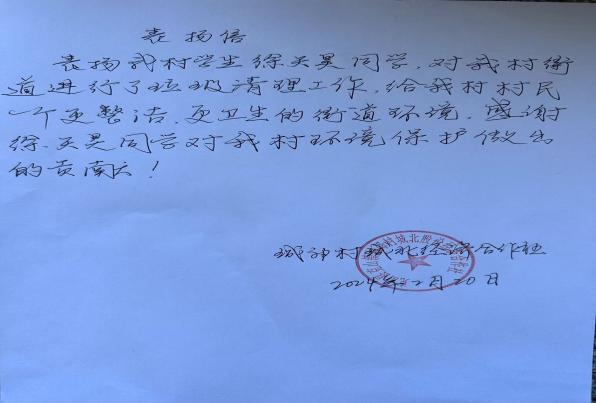 表扬信
表扬我村学生徐天昊同学,对我村街
道进行了垃圾清理工作,给我村村民
一个更整洁,更卫生的街道环境,感谢
徐天昊同学对我村环境保护做出
的贡献!
村城北经济合作社
2024年2月20日